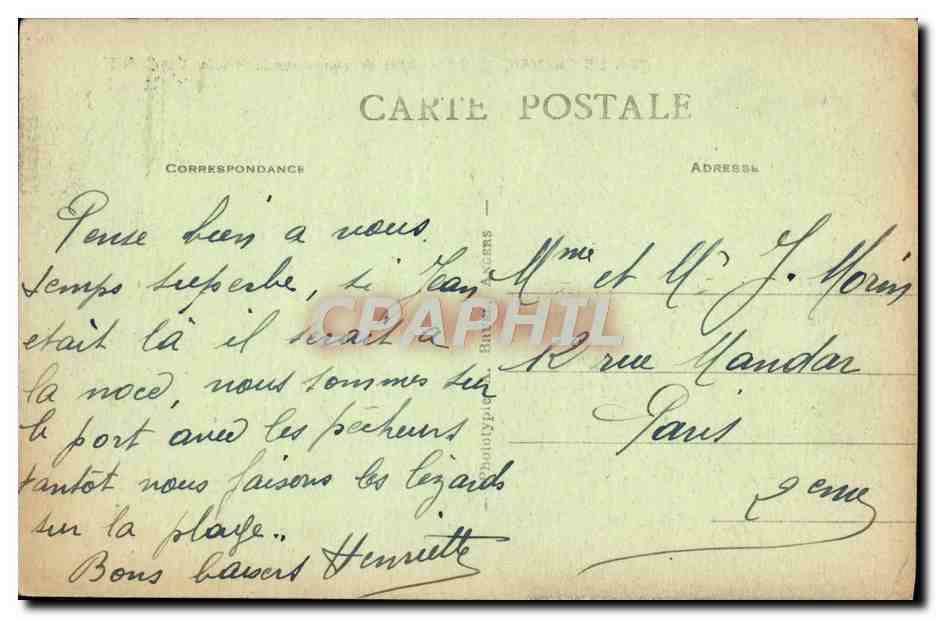 CARTE POSTALE
CORRESPONDANCE
ADRESSE
Pense bien a vous
temps superbe, si Jean
etait là il serait a
la noce, nous sommes sur
le port avec les pêcheurs
tantôt nous faisons les lézards
sur la plage..
Bons baisers Henriette
Mme et Mr J. Morin
12 rue Mandar
Paris
2eme
Phototypie
ANGERS
CPAPHIL